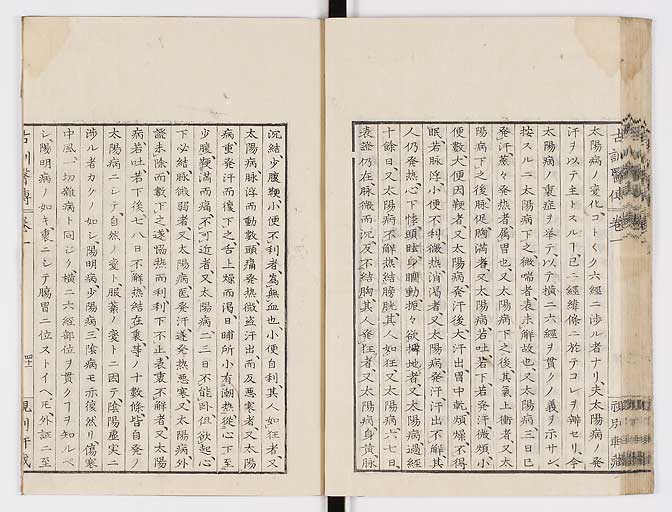 太陽病ノ変化コトくク六経ニ渉ル者ナリ、夫太陽病ノ発
汗ヲ以テ主トスルヿ已ニ経緯條ニ於テコレヲ辨セリ、今
太陽病ノ裏症ヲ挙テ以テ横ニ六経ヲ貫クノ義ヲ示サン、
按スルニ太陽病下之微喘者表未解故也、又太陽病三日已
発汗蒸々発熱者属胃也又太陽病下之後其氣上衝者又太
陽病下之後脉促胸満者又太陽病若吐若下若発汗微煩小
便數大便因鞕者、又太陽病発汗後大汗出胃中乾煩燥不得
眠若脉浮小便不利微熱消渇者又太陽病発汗汗出不解其
人仍発熱心下悸頭眩身瞤動振々欲擗地者又太陽病過経
十餘日、又太陽病不解熱結膀胱其人如狂又太陽病六七日、
表證仍在脉微而沉反不結胸其人発狂者又太陽病身黄脉
沉結、少腹鞕小便不利者為無血也小便自利其人如狂者、又
太陽病脉浮而動數頭痛発熱微盗汗出而反悪寒者又太陽
病重発汗而復下之、舌上燥而渇日晡所小有潮熱從心下至
少腹、鞕満而痛不可近者、又太陽病二三日不能卧但欲起心
下必結脉微弱者又太陽病医発汗遂発熱悪寒又太陽病外
證未除而數下之遂恊熱而利利下不止表裏不解者又太陽
病若吐若下後七八日不解熱結在裏等ノ十數條皆自発ノ
太陽病ニシテ自然ノ変ト服薬ノ変トニ因テ陰陽虚実ニ
渉ル者カクノ如シ陽明病少陽病三陰病モ亦復然リ傷寒
中風一切雑病ト同シク横ニ六經部位ヲ貫クヿヲ知ルベ
シ陽明病ノ如キ裏ニシテ腸胃ニ位ストイヘ𪜈外証ニ至